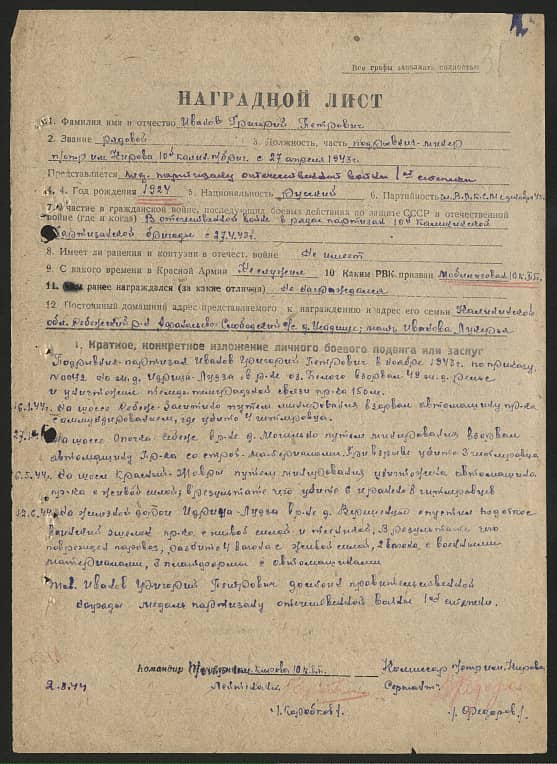 Все графы заполнять полностью
НАГРАДНОЙ ЛИСТ
1. Фамилия имя и отчество Иванов Григорий Петрович
2. Звание рядовой 3. Должность, часть подрывник-минер
п/отр им. Кирова 10й калин. п/бриг. с 27 апреля 1943г.
Представляется мед. партизану отечественной войны 1ой степени
4. Год рождения 1924 5. Национальность Русский 6. Партийность
7. Участие в гражданской войне, последующих боевых действиях по защите СССР и отечественной
войне (где и когда) В отечественной войне в рядах партизан 10й Калининской
партизанской бригады с 27.4.43г.
8. Имеет ли ранения и контузии в отечест. войне Не имеет
9. С какого времени в Красной Армии Не служил 10 Каким РВК призван
11. Чем ранее награждался (за какие отличия) Не награждался
12 Постоянный домашний адрес представляемого к награждению и адрес его семьи Калининской
обл. Себежский р-н с/с д. мать Иванова Лукерья
1. Краткое, конкретное изложение личного боевого подвига или заслуг
Подрывник-партизан Иванов Григорий Петрович в ноябре 1943г. по приказу
на ж.д. Идрица-Лудза в р-не оз. Белого взорвал 48 ж.д. рельс
и уничтожил телеграфной связи пр-ка 150м.
16.1.44г. На шоссе Себеж-Заситино путем минирования взорвал автомашину пр-ка
с где убито 4 гитлеровца.
На шоссе Опочка-Себеж в р-не д. Могилино путем минирования взорвал
автомашину пр-ка со строй-материалами. При взрыве убито 3 гитлеровца
6.5.44г. На шоссе Красный-Мозры путем минирования уничтожена автомашина
пр-ка с живой силой; в результате чего убито 6 и ранено 8 гитлеровцев
12.6.44г. На железной дороге Идрица-Лудза в р-не д. спустил под откос
воинский эшелон пр-ка с живой силой и техникой; В результате чего
поврежден паровоз, разбито вагона с живой силой, 2 вагона с военными
материалами, платформы с автомашинами
Тов. Иванов Григорий Петрович достоин правительственной
награды медаль партизану отечественной войны 1ой степени.
Командир Кирова 10 к.п.б. Комиссар п/отр им. Кирова
2.8.44 Лейтенант Сержант
/. Коробков /. /. Федоров /.